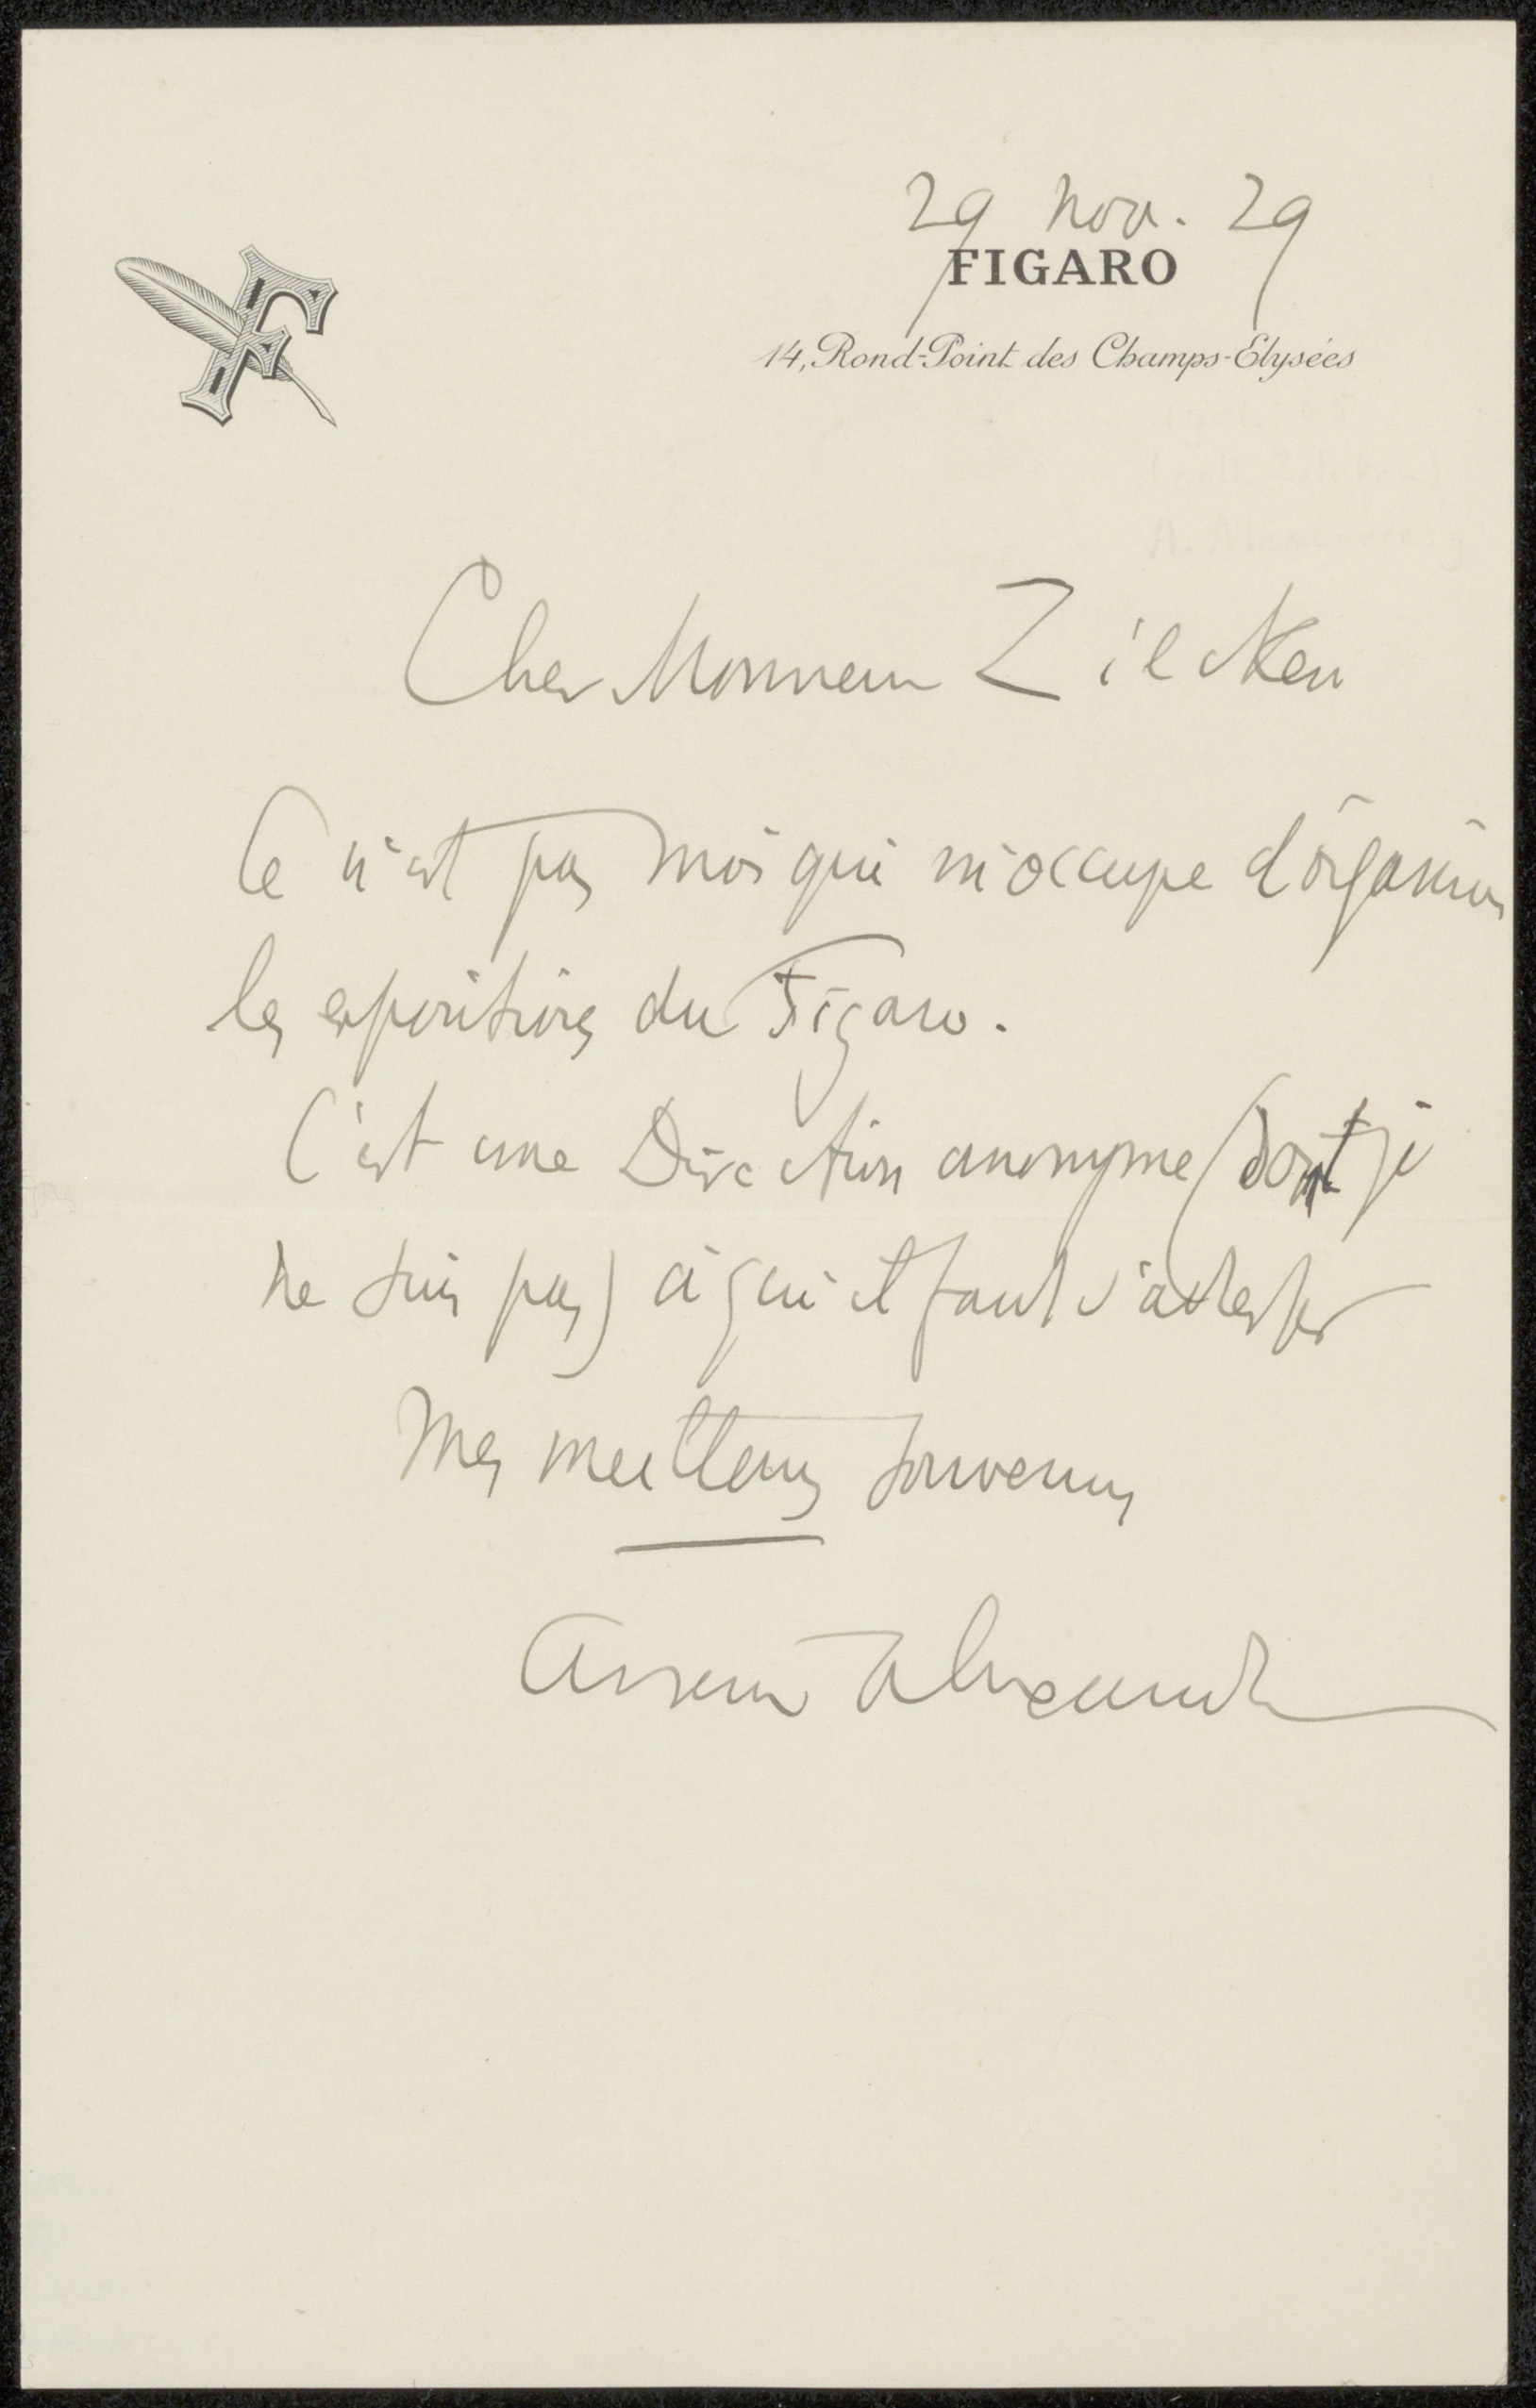 29 nov. 29
FIGARO
14, Rond-Point des Champs-Elysées
Cher Monsieur Zilcken
Ce n'est pas moi qui m'occupe d'organiser
les expositions du Figaro.
C'est une Direction anonyme (dont je
ne suis pas) à qui il faut s'adresser
Mes meilleurs souvenirs
Arsène Alexandre